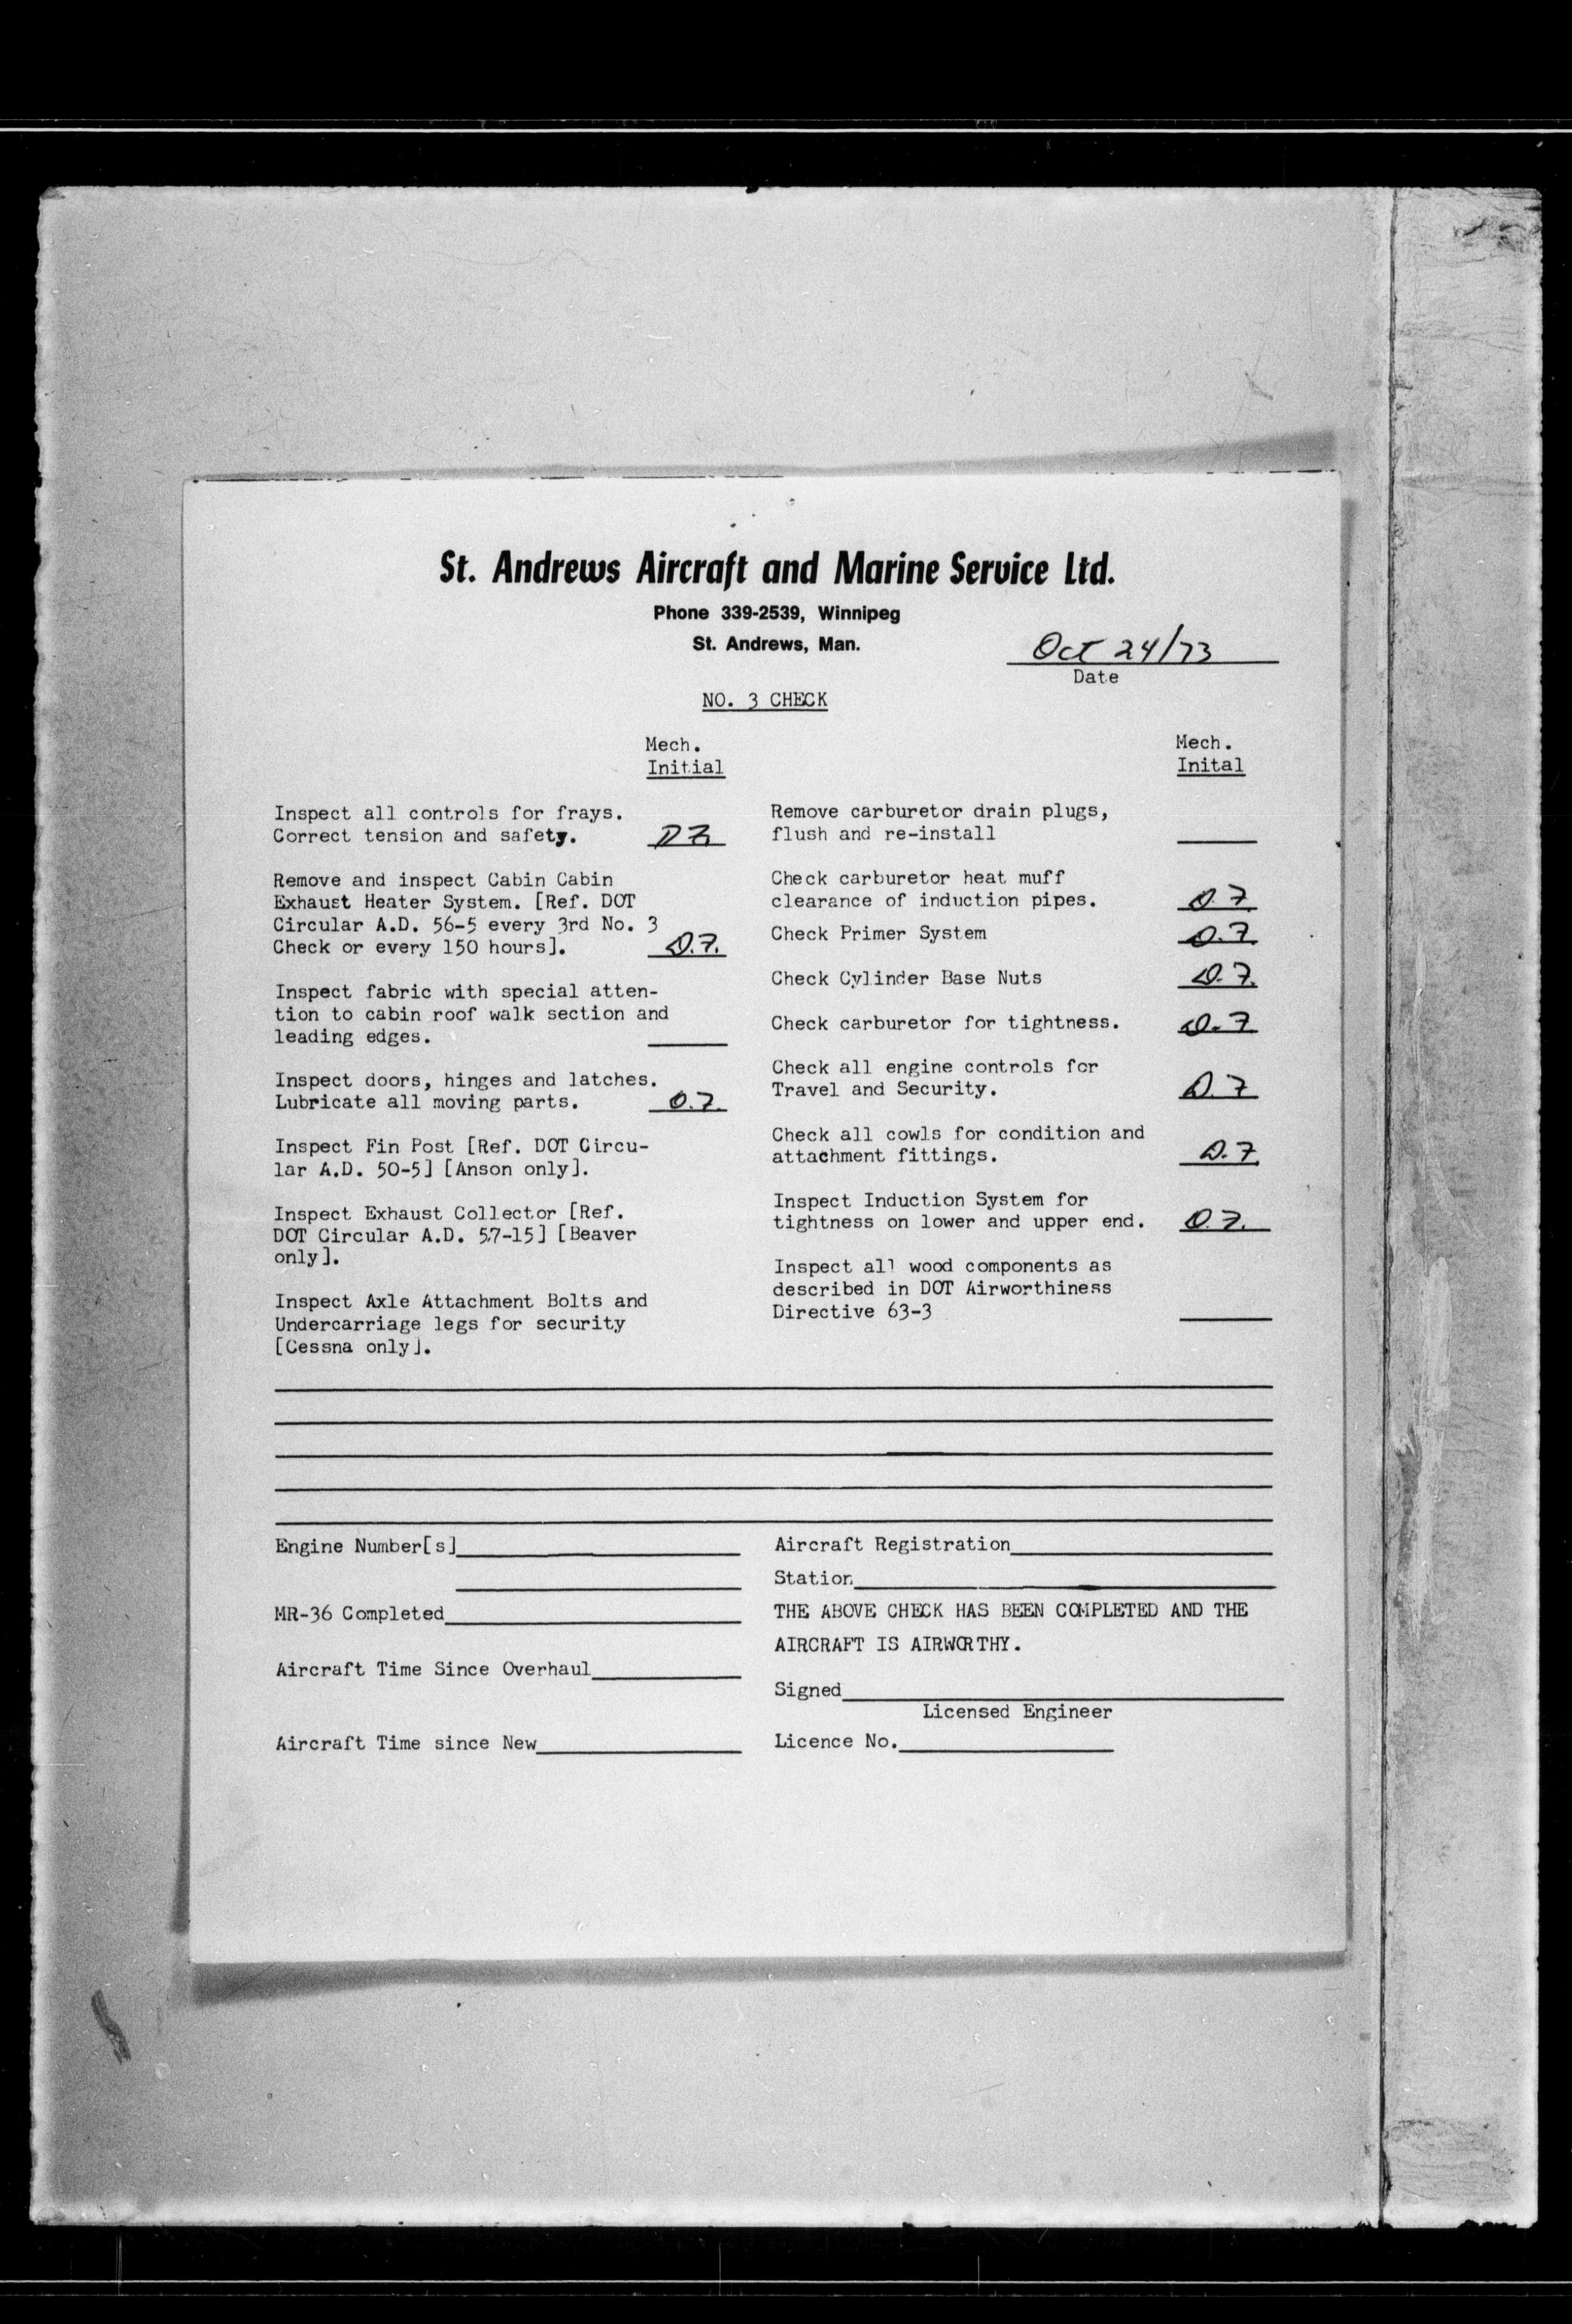 St. Andrews Aircraft and Marine Service Ltd.
Phone 339-2539, Winnipeg
St. Andrews, Man.
Oct 24/73
Date
NO. 3 CHECK
Mech.
Initial
Inspect all controls for frays.
Correct tension and safety.
Remove and inspect Cabin Cabin
Exhaust Heater System. [Ref. DOT
Circular A.D. 56-5 every 3rd No. 3
Check or every 150 hours]. D.Z.
Inspect fabric with special atten-
tion to cabin roof walk section and
leading edges.
Inspect doors, hinges and latches.
Lubricate all moving parts. D.Z.
Inspect Fin Post [Ref. DOT Circu-
lar A.D. 50-5] [Anson only].
Inspect Exhaust Collector [Ref.
DOT Circular A.D. 57-15] [Beaver
only].
Inspect Axle Attachment Bolts and
Undercarriage legs for security
[Cessna only].
Mech.
Inital
Remove carburetor drain plugs,
flush and re-install
Check carburetor heat muff
clearance of induction pipes. D.Z
Check Primer System D.Z.
Check Cylinder Base Nuts D.Z.
Check carburetor for tightness. D.Z
Check all engine controls for
Travel and Security. D.Z
Check all cowls for condition and
attachment fittings. D.Z.
Inspect Induction System for
tightness on lower and upper end. D.Z.
Inspect all wood components as
described in DOT Airworthiness
Directive 63-3
Engine Number[s]
MR-36 Completed
Aircraft Time Since Overhaul
Aircraft Time since New
Aircraft Registration
Station
THE ABOVE CHECK HAS BEEN COMPLETED AND THE
AIRCRAFT IS AIRWORTHY.
Signed
Licensed Engineer
Licence No.